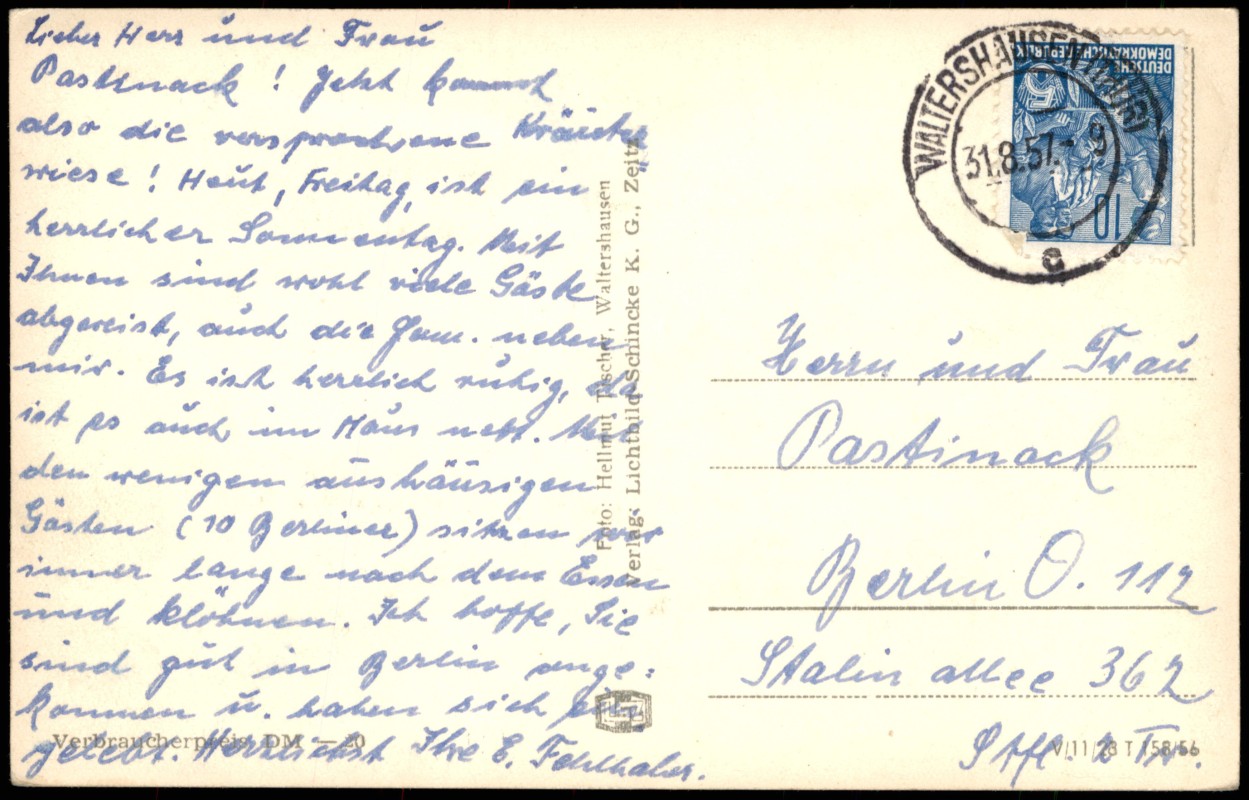 Lieber Herr und Frau
Pastinack! Jetzt kommt
also die versprochene Kräuter
wiese! Heut, Freitag, ist ein
herrlicher Sonnentag. Mit
Ihnen sind wohl viele Gäste
abgereist, auch die Fam. neben
mir. Es ist herrlich ruhig, da
ist es auch im Haus nett. Mit
den wenigen aushäusigen
Gästen (10 Berliner) sitzen wir
immer lange nach dem Essen
und klöhnen. Ich hoffe, Sie
sind gut in Berlin ange=
kommen u. haben sich ein
gelebt. Herzlichst Ihre E.
Verbraucherpreis DM —20
Foto: Hellmut Tischer, Waltershausen
Verlag: Lichtbild Schincke K. G., Zeitz
WALTERSHAUSEN (THÜR)
31.8.57.- 9
c
DEUTSCHE
DEMOKRATISCHE REPUBLIK
10
Herrn und Frau
Pastinack
Berlin O. 112
Stalin allee 362
V/11/28 T 158/56